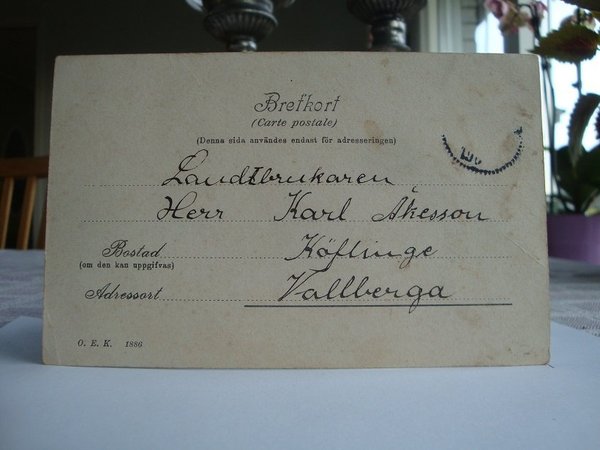 Brefkort
(Carte postale)
(Denna sida användes endast för adresseringen)
Landtbrukaren
Herr Karl Åkesson
Bostad Köflinge
(om den kan uppgifvas)
Adressort Vallberga
O. E. K. 1886